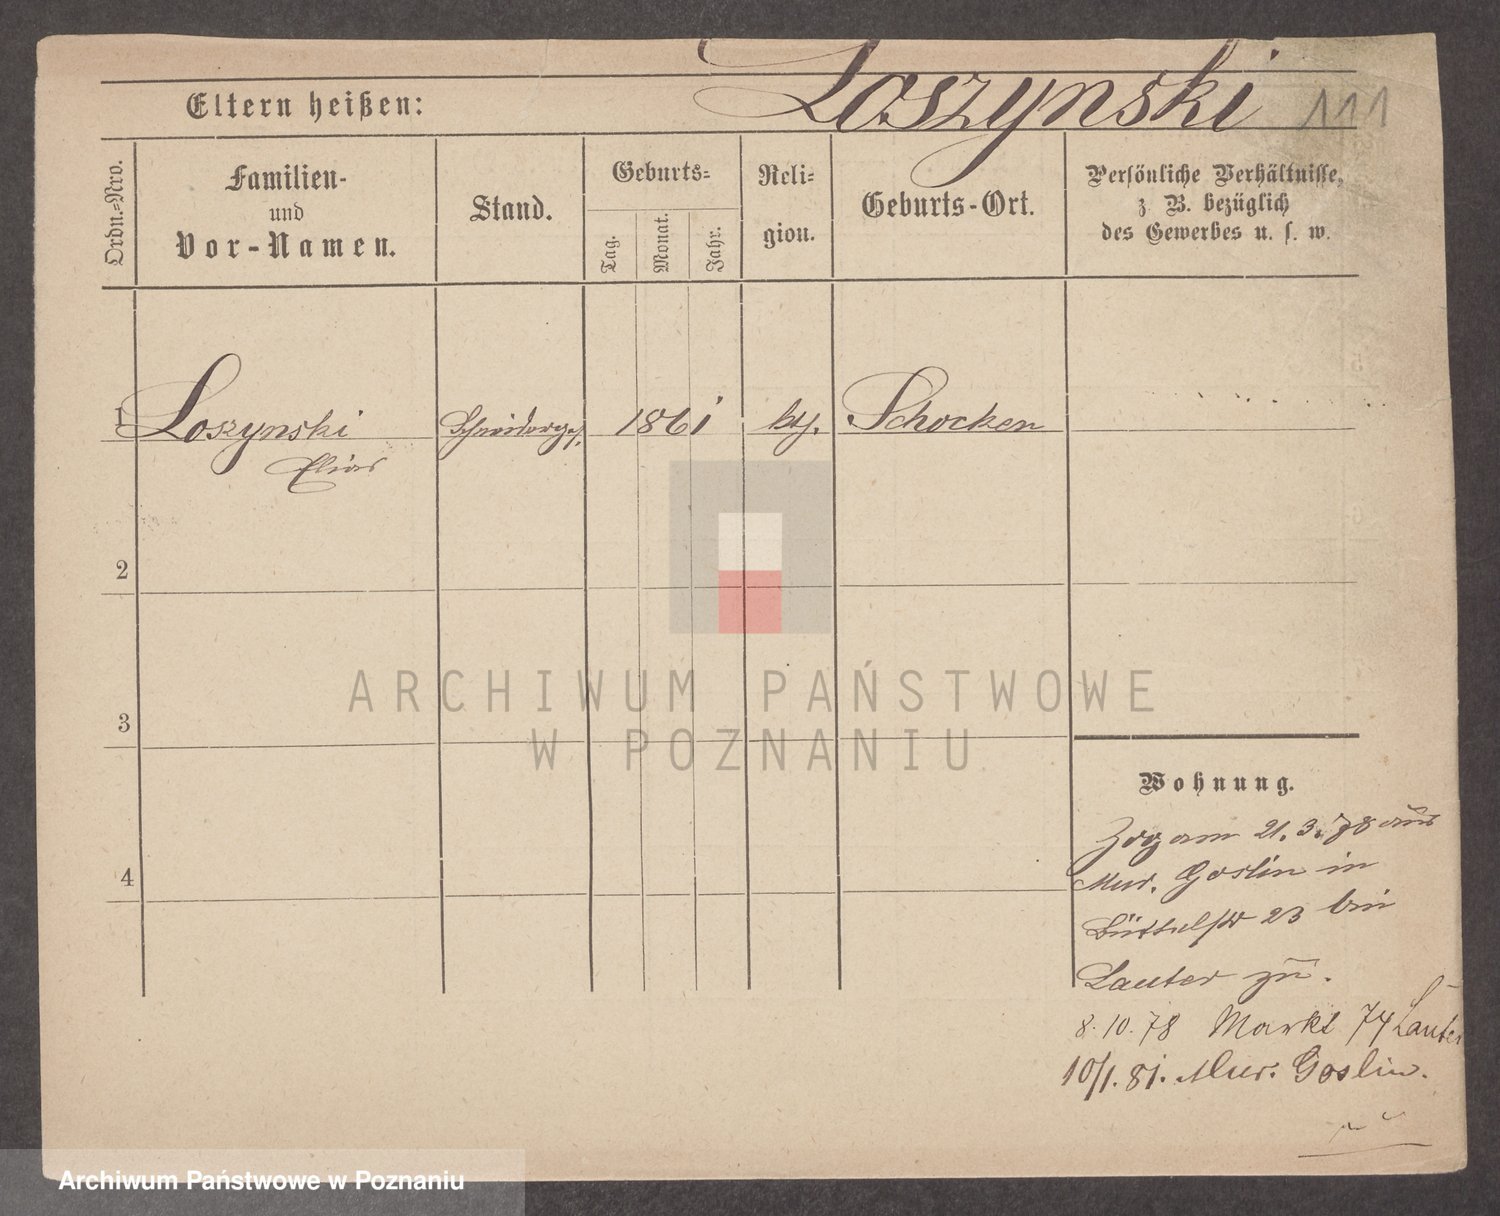 Loszynski 111
Eltern heißen:
Ordn.-Nro.
Familien-
und
Vor-Namen.
Stand.
Geburts-
Tag.
Monat.
Jahr.
Reli-
gion.
Geburts-Ort.
Persönliche Verhältnisse,
z. B. bezüglich
des Gewerbes u. s. w.
1 Loszynski Schneiderges. 1861 Schocken
Elias
2
3
4
ARCHIWUM PAŃSTWOWE
W POZNANIU
Wohnung.
Zog am 21.3.78 aus
Mur. Goslin in
Büttelstr 23 bei
Lauter zu.
8.10.78 Markt 74 Lauter
10/1.81. Mur. Goslin.
Archiwum Państwowe w Poznaniu